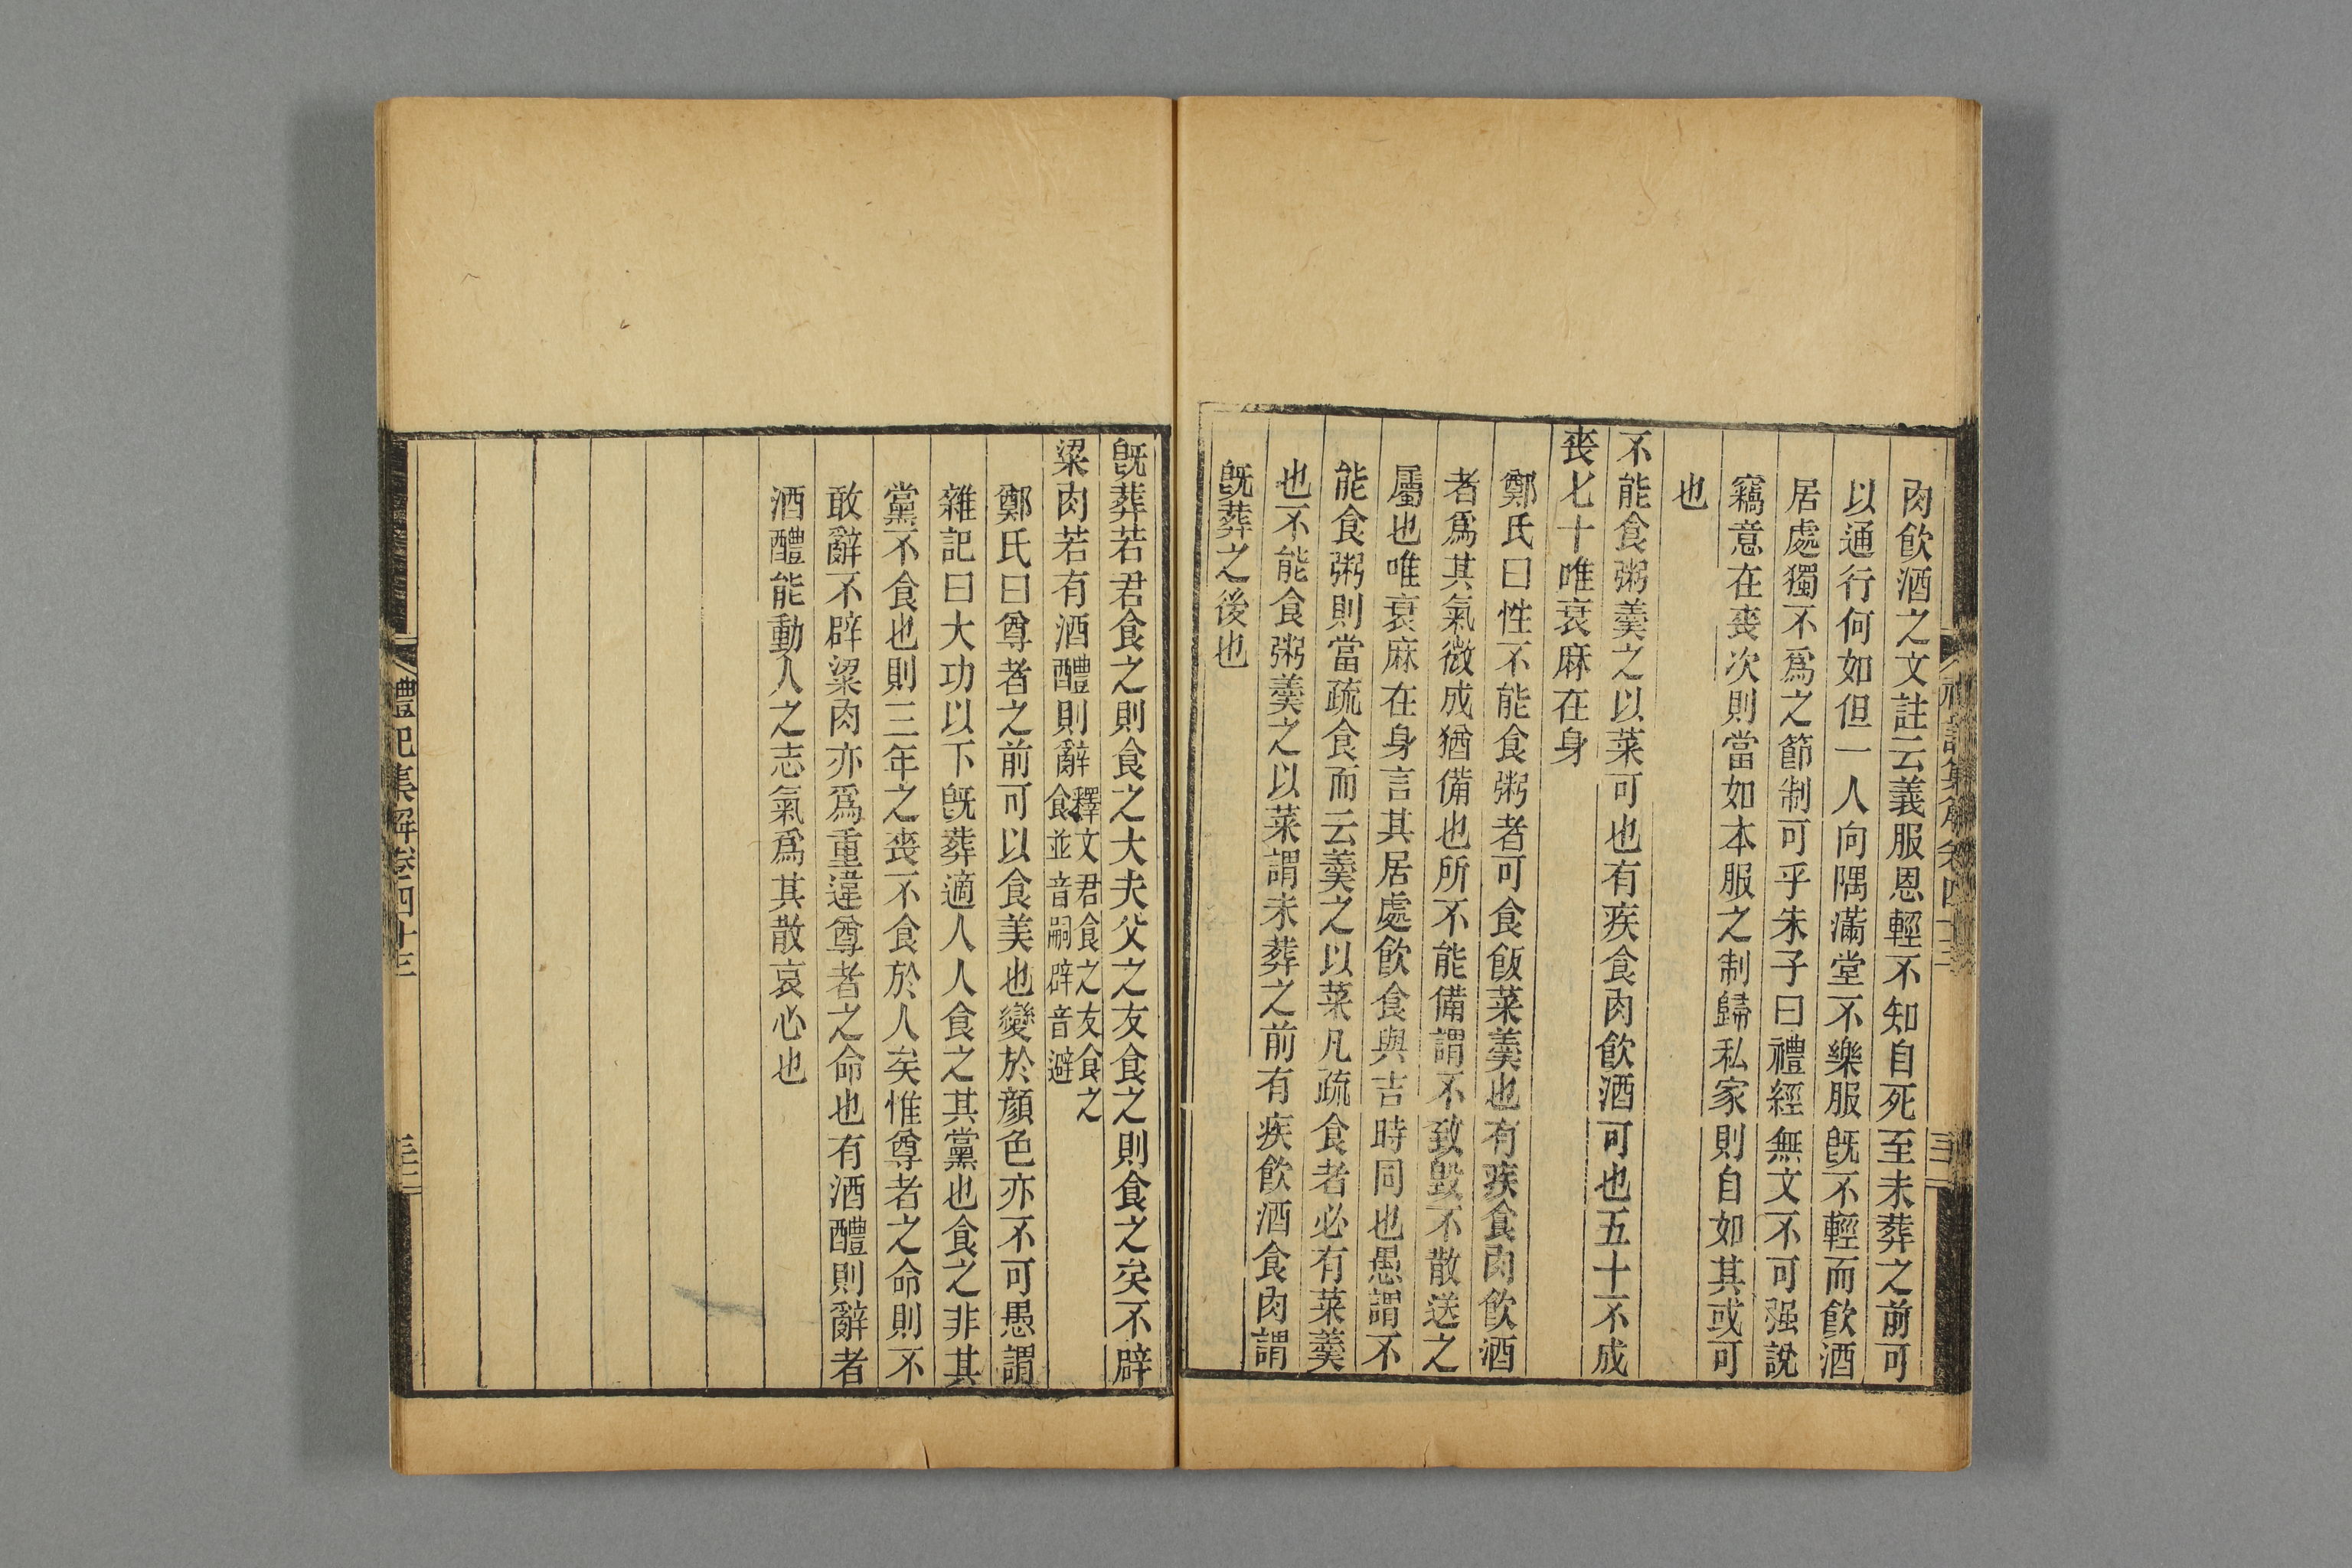 肉飮酒之文註云義服恩輕不知自死至未葬之前可
以通行何如但一人向隅滿堂不樂服旣不輕而飮酒
居處獨不爲之節制可乎朱子曰禮經無文不可强說
竊意在喪次則當如本服之制歸私家則自如其或可
也
不能食粥羹之以菜可也有疾食肉飮酒可也五十不成
喪七十唯衰麻在身
鄭氏曰性不能食粥者可食飯菜羹也有疾食肉飮酒
者爲其氣微成猶備也所不能備謂不致毀不散送之
屬也唯衰麻在身言其居處飮食與吉時同也愚謂不
能食粥則當疏食而云羹之以菜凡疏食者必有菜羹
也不能食粥羹之以菜謂未葬之前有疾飮酒食肉謂
旣葬之後也
旣葬若君食之則食之大夫父之友食之則食之矣不辟
粱肉若有酒醴則辭釋文君食之友食之
食並音嗣辟音避
鄭氏曰尊者之前可以食美也變於顏色亦不可愚謂
雜記曰大功以下旣葬適人人食之其黨也食之非其
黨不食也則三年之喪不食於人矣惟尊者之命則不
敢辭不辟粱肉亦爲重違尊者之命也有酒醴則辭者
酒醴能動人之志氣爲其散哀心也
禮記集解卷四十三
三二